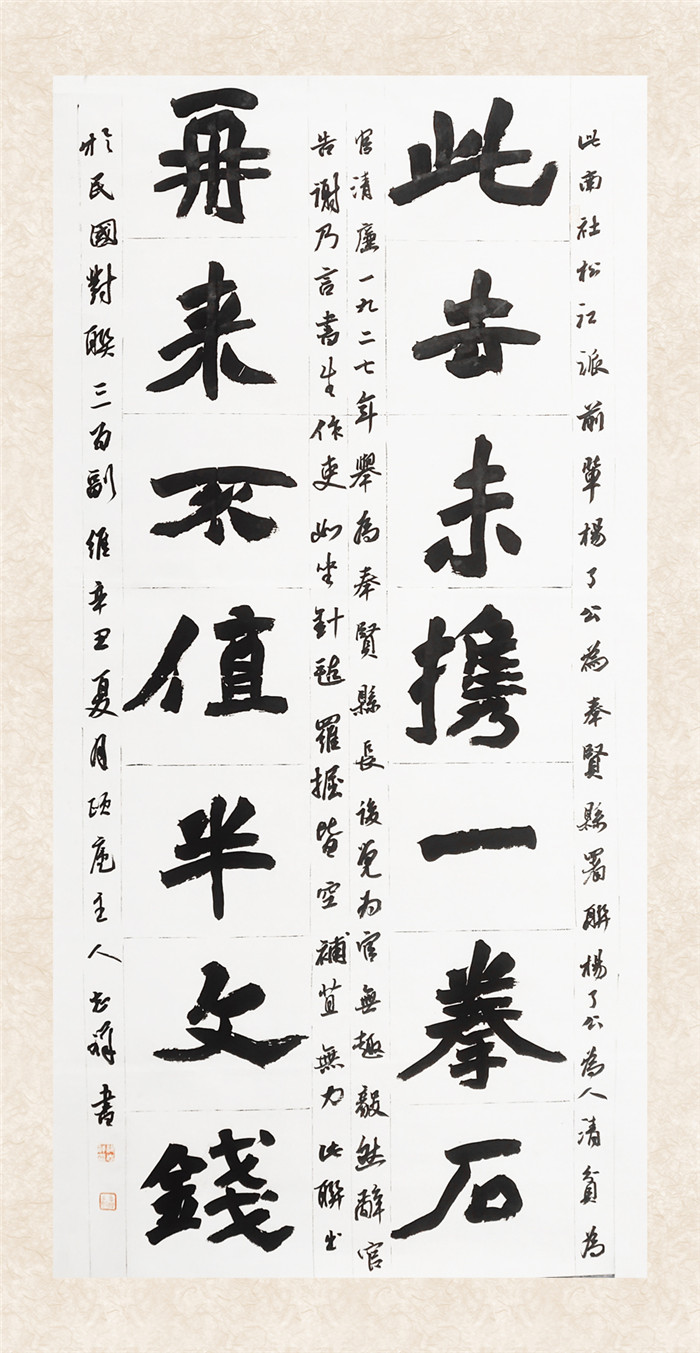 此南社松江派前輩楊了公為奉賢縣署聯楊了公為人清貧為
此去未携一拳石
官清廉一九二七年舉為奉賢縣長後覺为官無趣毅然辭官
告謝乃言書生作吏如坐針氈羅握皆空補苴無力此聯出
再来不值半文錢
於民國對聯三百副維辛丑夏月頤庵主人志祥書